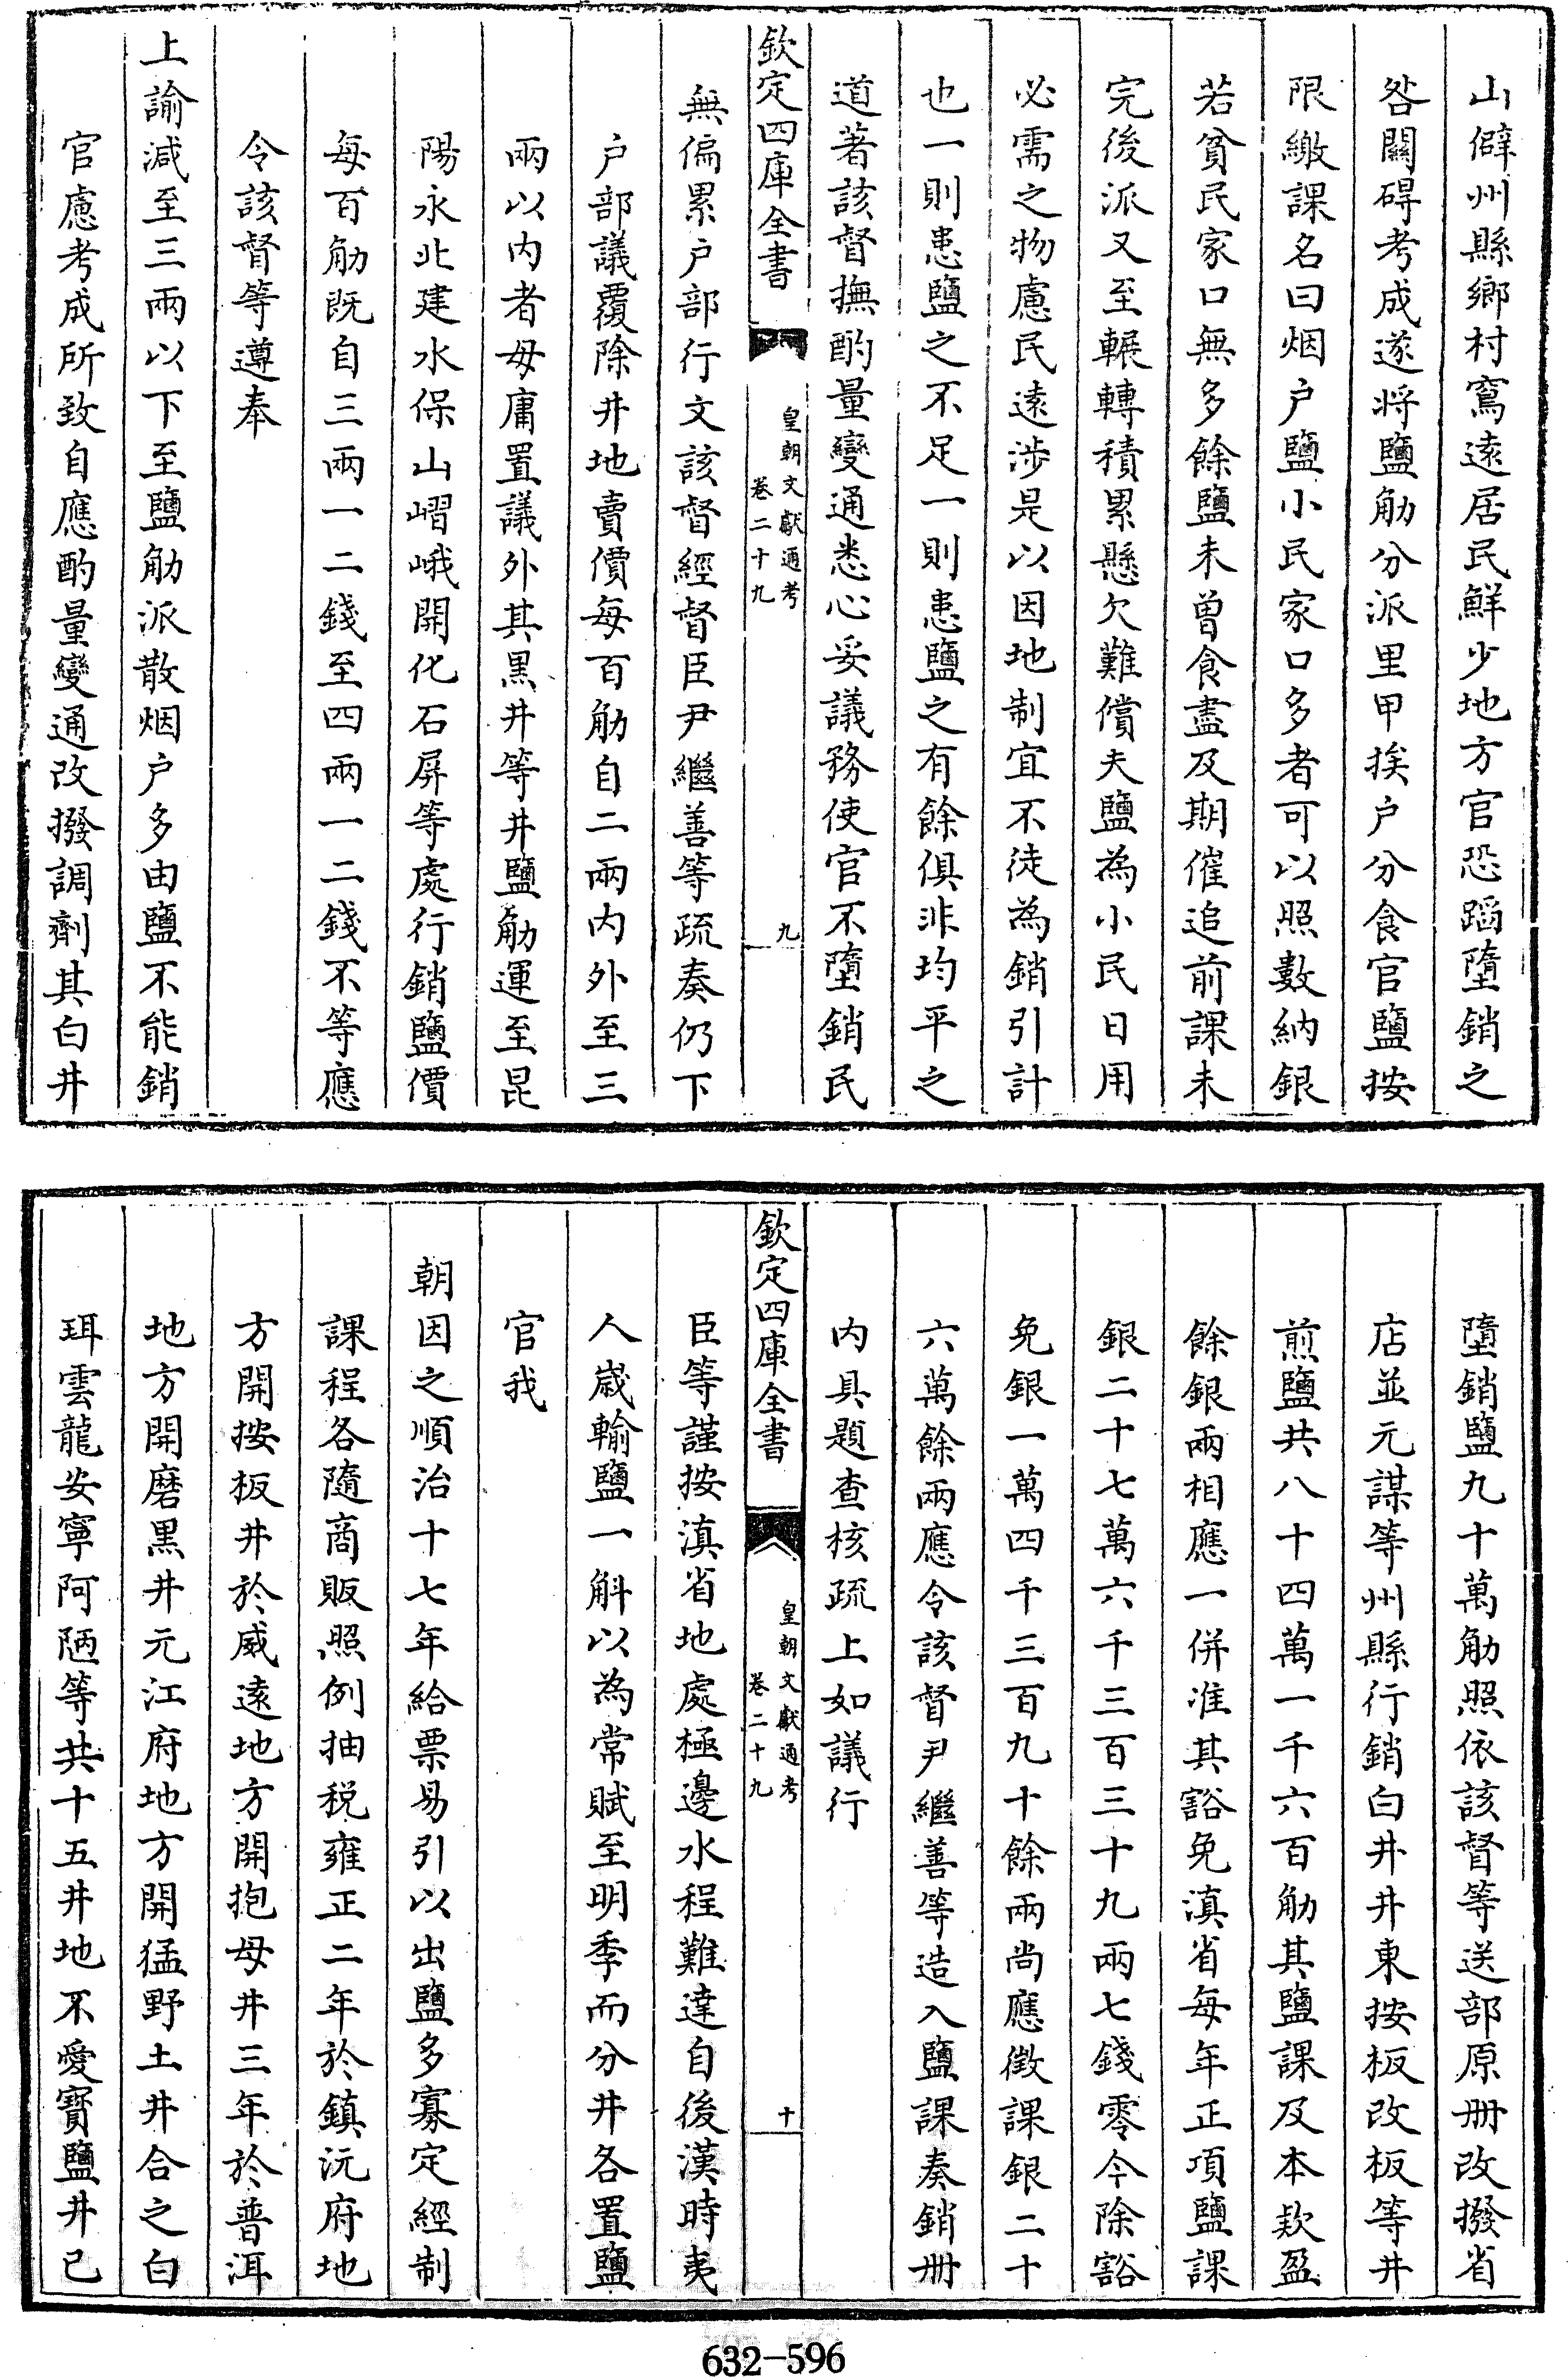 山僻州縣鄉村窵遠居民鮮少地方官恐蹈墮銷之
咎關碍考成遂將鹽觔分派里甲挨户分食官鹽按
限繳課名曰烟户鹽小民家口多者可以照數納銀
若貧民家口無多餘鹽未曾食盡及期催追前課未
完後派又至輾轉積累懸欠難償夫鹽為小民日用
必需之物慮民遠涉是以因地制宜不徒為銷引計
也一則患鹽之不足一則患鹽之有餘俱非均平之
道著該督撫酌量變通悉心妥議務使官不墮銷民
欽定四庫全書
皇朝文獻通考
卷二十九
九
無偏累户部行文該督經督臣尹繼善等疏奏仍下
户部議覆除井地賣價每百觔自二兩内外至三
兩以内者毋庸置議外其黑井等井鹽觔運至昆
陽永北建水保山嶍峨開化石屏等處行銷鹽價
每百觔既自三兩一二錢至四兩一二錢不等應
令該督等遵奉
上諭減至三兩以下至鹽觔派散烟户多由鹽不能銷
官慮考成所致自應酌量變通改撥調劑其白井
墮銷鹽九十萬觔照依該督等送部原册改撥省
店並元謀等州縣行銷白井井東按板改板等井
煎鹽共八十四萬一千六百觔其鹽課及本欵盈
餘銀兩相應一併准其豁免滇省每年正項鹽課
銀二十七萬六千三百三十九兩七錢零今除豁
免銀一萬四千三百九十餘兩尚應徵課銀二十
六萬餘兩應令該督尹繼善等造入鹽課奏銷册
内具題查核疏上如議行
欽定四庫全書
皇朝文獻通考
卷二十九
十
臣等謹按滇省地處極邊水程難達自後漢時夷
人嵗輸鹽一斛以為常賦至明季而分井各置鹽
官我
朝因之順治十七年給票易引以出鹽多寡定經制
課程各隨商販照例抽税雍正二年於鎮沅府地
方開按板井於威遠地方開抱母井三年於普洱
地方開磨黑井元江府地方開猛野土井合之白
珥雲龍安寧阿陋等共十五井地不愛寳鹽井已
632-596